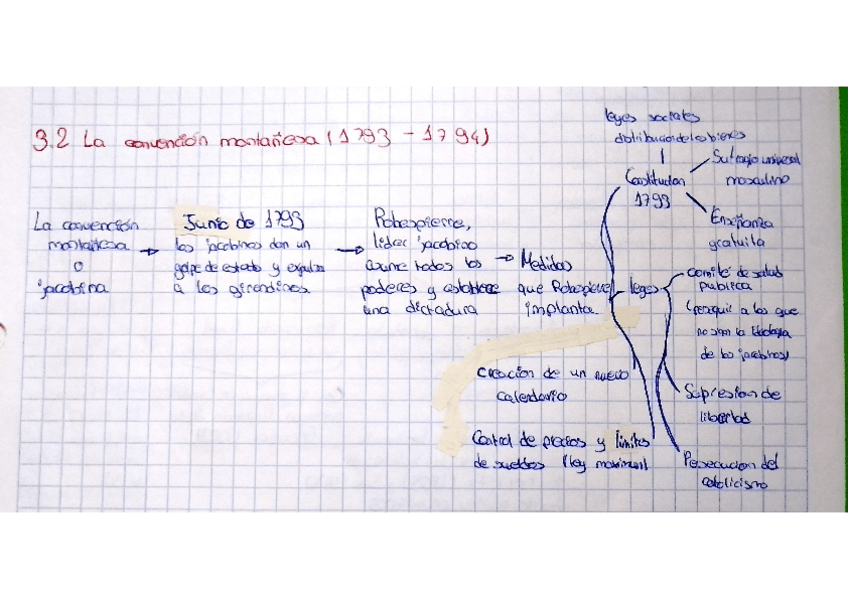 3.2 La convención montañesa (1793 - 1794)
La convención
montañesa
o
jacobina
Junio de 1793
los jacobinos dan un
golpe de estado y expulsa
a los girondinos.
Robespierre,
líder jacobino
asume todos los
poderes y establece
una dictadura
Medidas
que Robespierre
implanta.
leyes sociales
distribución de los bienes
Constitución
1793
Sufragio universal
masculino
Enseñanza
gratuita
leyes
comité de salud
publica
(persquir a los que
no sigan la ideología
de los jacobinos)
Supresión de
libertad
Persecucion del
catolicismo
Creación de un nuevo
calendario
Control de precios y límites
de sueldos (ley maximun)